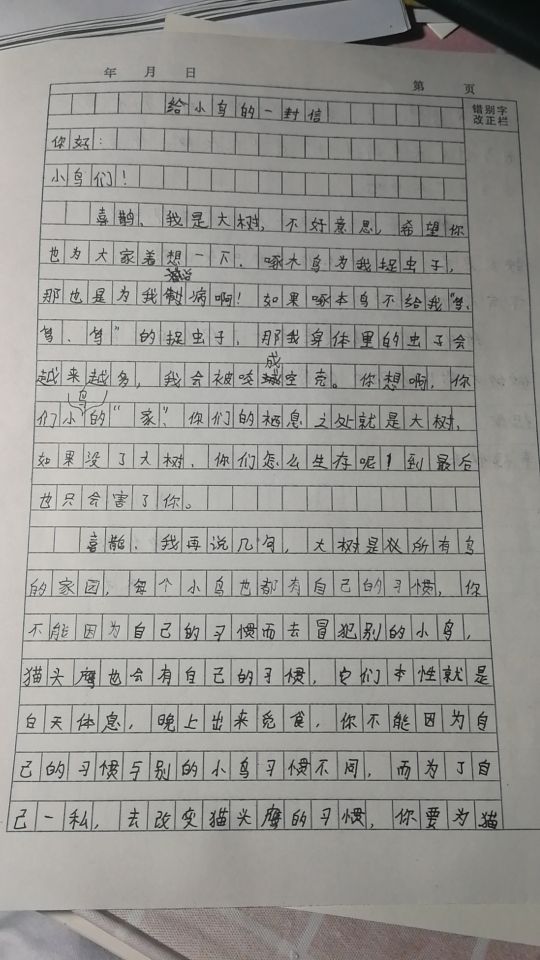 年 月 日 第 页
错别字
改正栏
给小鸟的一封信
你好:
小鸟们!
喜鹊、我是大树,不好意思,希望你
也为大家着想一下.啄木鸟为我捉虫子,
那也是为我治病啊!如果啄木鸟不给我“笃、
笃、笃”的捉虫子,那我身体里的虫子会
越来越多,我会被咬成空壳。你想啊,你
们小鸟的“家”、你们的栖息之处就是大树、
如果没了大树、你们怎么生存呢!到最后
也只会害了你。
喜鹊、我再说几句,大树是所有鸟
的家园,每个小鸟也都有自己的习惯,你
不能因为自己的习惯而去冒犯别的小鸟,
猫头鹰也会有自己的习惯,它们本性就是
白天体息,晚上出来觅食,你不能因为自
己的习惯与别的小鸟习惯不同,而为了自
己一私,去改变猫头鹰的习惯,你要为猫